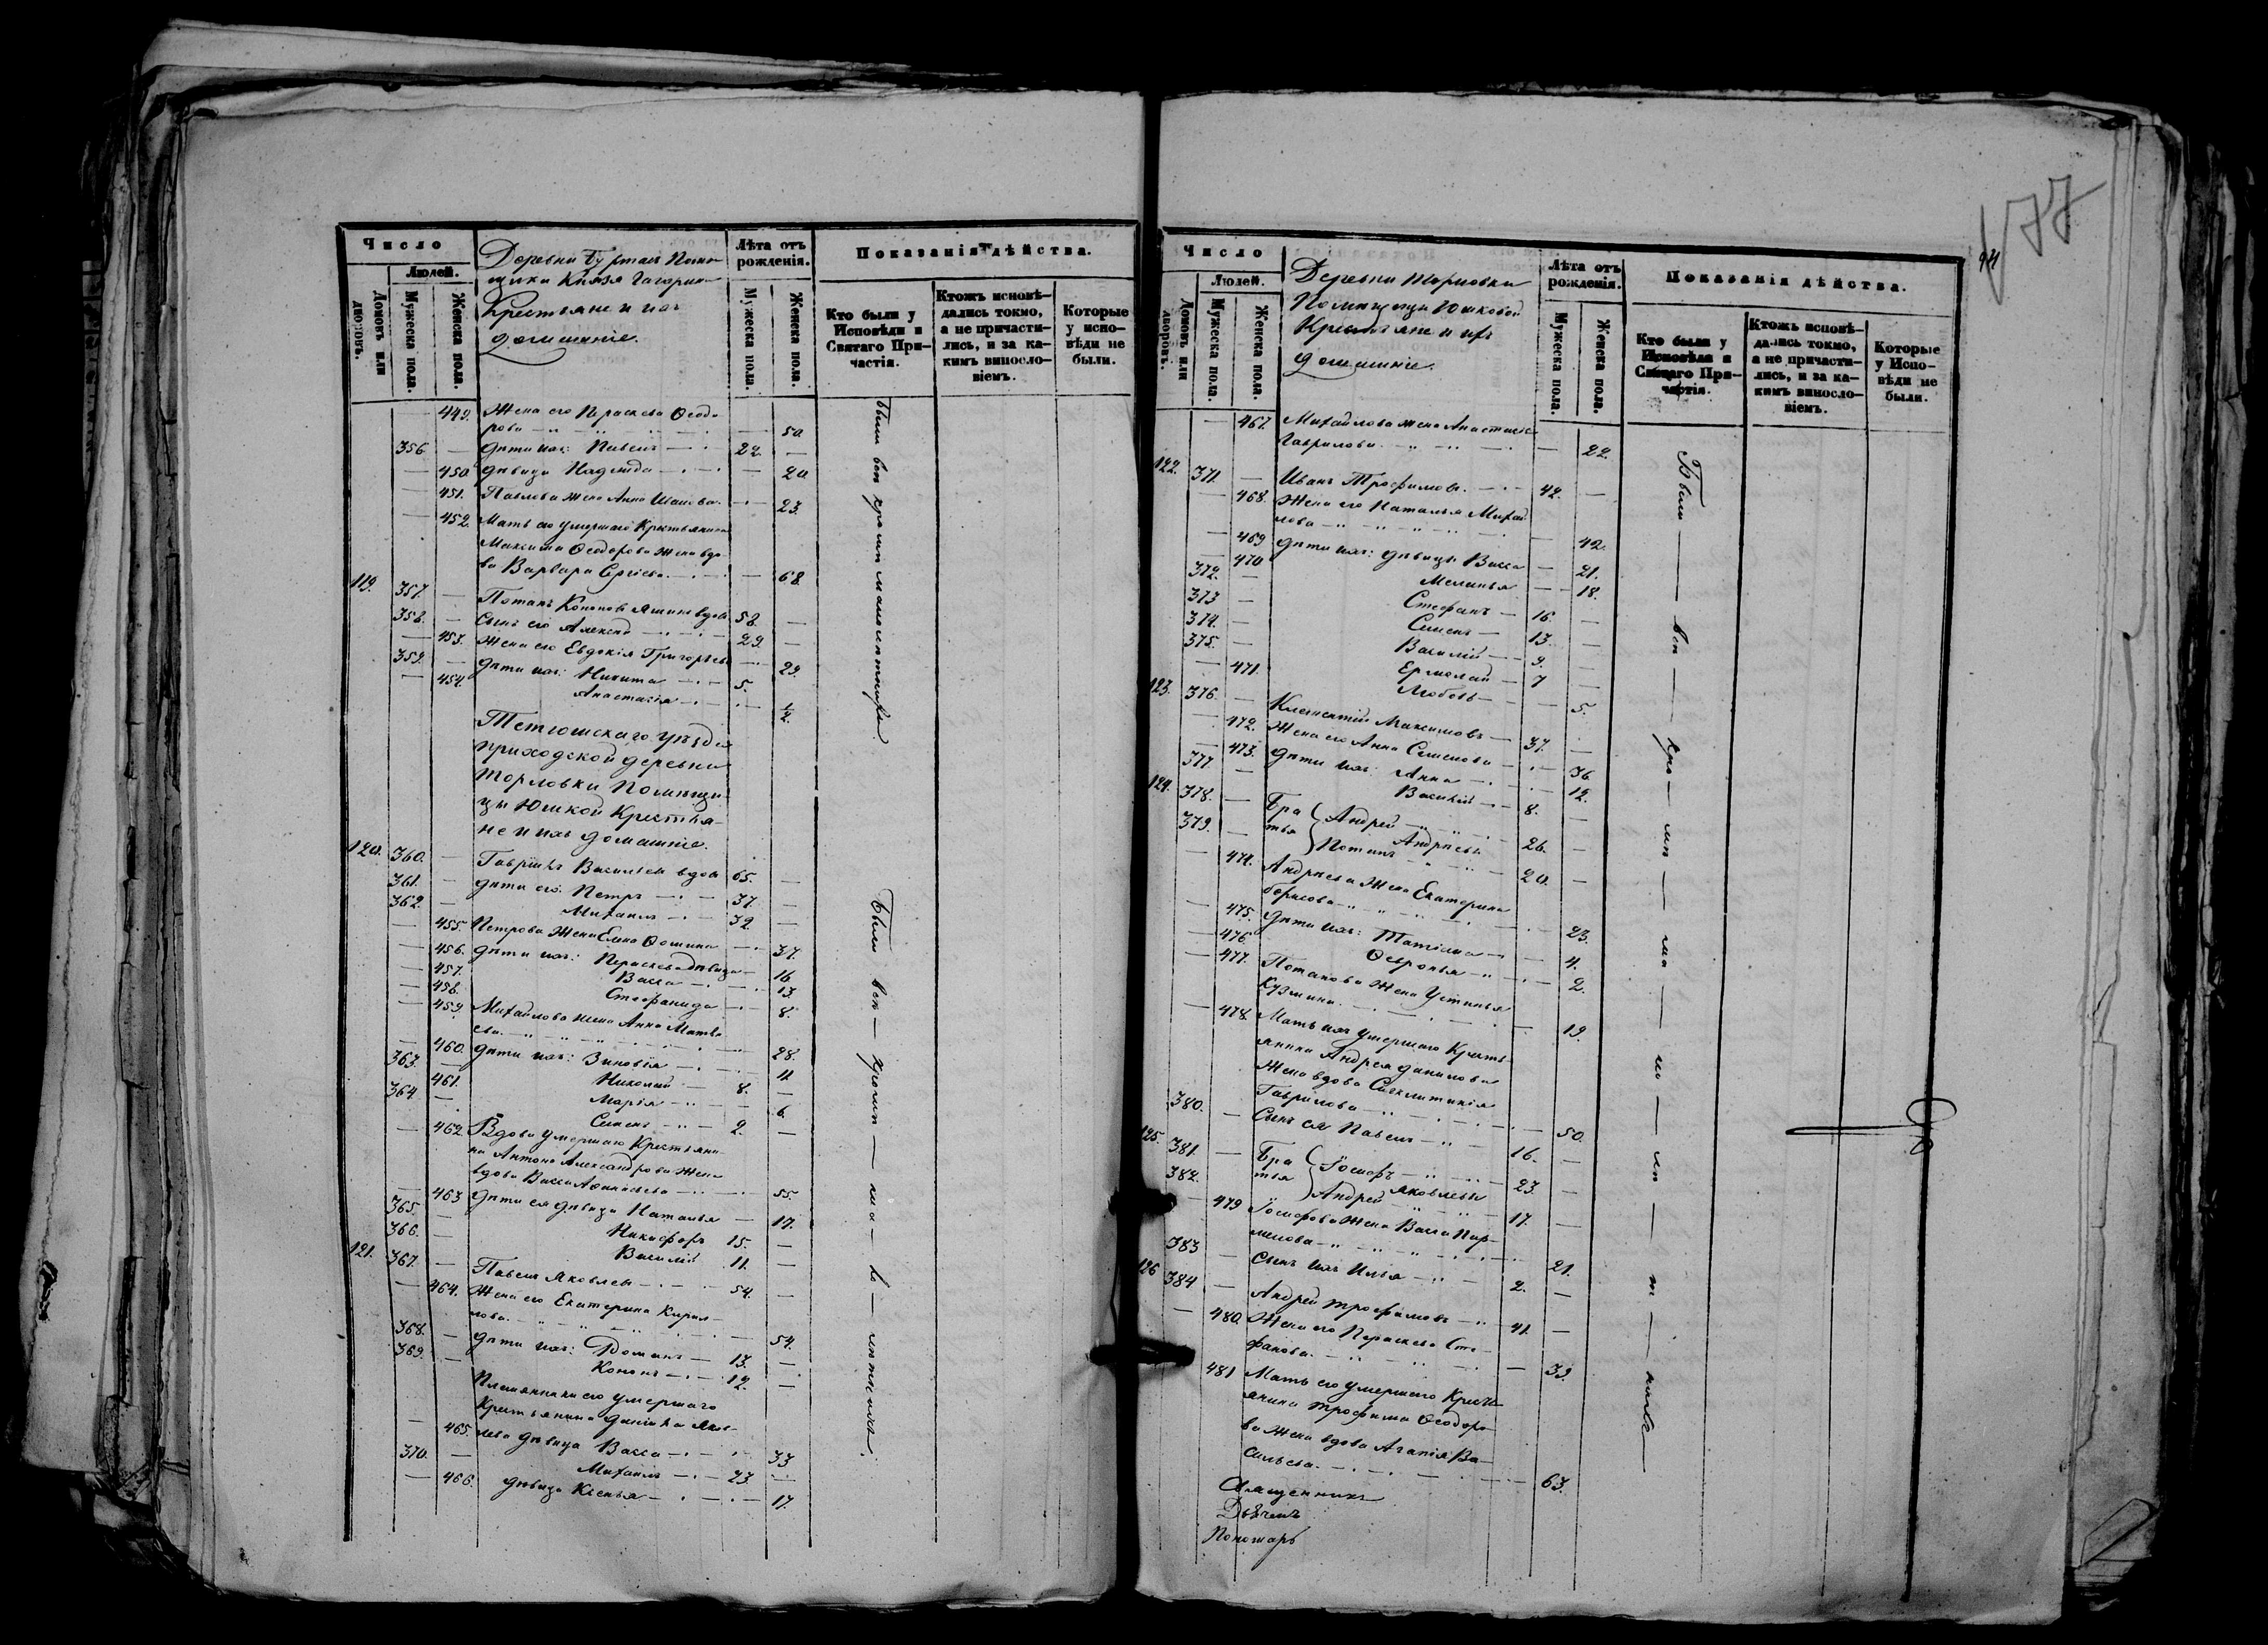 Число
Людей.
Домовъ или дворовъ.
Мужеска пола.
Женска пола.
Деревни Буртасъ Поме-
щика Князя Гагарина
Крестьяне и ихъ
домашніе.
Лѣта отъ рожденія.
Мужеска пола.
Женска пола.
Показанія дѣйства.
Кто были у Исповѣди и Святаго При-частія.
Ктожъ исповѣ-дались токмо, а не причасти-лись, и за ка-кимъ виносло-віемъ.
Которые у испо-вѣди не были.
449. Жена его Параскева Ѳеодо-
рова 50
356 — дѣти ихъ: Павелъ 22. —
450 дѣвица Надежда — 20
451. Павлова жена Анна — 23.
452. Мать его умершаго Крестьянина
Максима Ѳеодорова жена вдо-
ва Варвара Сергіева — 68.
119. 357. — Потапъ Кононовъ вдовъ 58. —
358. — Сынъ его Алексей 29. —
453. Жена его Евдокія Григорьева — 29.
359. — дѣти ихъ: Никита 5.
454. Анастасія — ½
Были всѣ кромѣ малолѣтныхъ
Тетюшскаго уѣзда
приходской деревни
Торловки Помѣщи-
цы Юшкой Крестья-
не и ихъ домашніе.
120. 360. — Гаврiилъ Васильевъ вдовъ 65. —
361. — дѣти его: Петръ 37. —
362. — Михаилъ 32. —
455. Петрова жена Елена Ѳомина — 37.
456. дѣти ихъ: Параскева дѣвица — 16
457. Васса — 13.
458. Стефанида — 8.
459. Михайлова жена Анна Матве-
ева 28.
460. дѣти ихъ: Зиновія — 11
363. — Николай 8. —
461. Марія — 6.
364 — Семенъ 2. —
462. Вдова умершаго Крестьяни-
на Антона Александрова жена
вдова Васса Аѳанасьева — 55.
463 дѣти ея дѣвица Наталья — 17.
365. — Никифоръ 15. —
366. — Василій 11. —
121. 367. — Павелъ Яковлевъ 54. —
464. Жена его Екатерина Кирил-
лова 54.
368. — дѣти ихъ: Романъ 13. —
369. — Кононъ 12. —
Племянники его умершаго
Крестьянина Данiила Яков-
465. лева дѣвица Васса — 33
370. — Михаилъ 23.
466. дѣвица Ксенья — 17.
Были всѣ — кромѣ — ма — ло — лѣтныхъ.
94
177
Число
Людей.
Домовъ или дворовъ.
Мужеска пола.
Женска пола.
Деревни Торловки
Помѣщицы Юшковой
Крестьяне и ихъ
домашніе.
Лѣта отъ рожденія.
Мужеска пола.
Женска пола.
Показанія дѣйства.
Кто были у Исповѣди и Святаго При-частія.
Ктожъ исповѣ-дались токмо, а не причасти-лись, и за ка-кимъ виносло-віемъ.
Которые у Испо-вѣди не были.
467. Михайлова жена Анастасья
Гаврилова — 22.
122. 371. — Иванъ Трофимовъ 42. —
468. Жена его Наталья Михай-
лова — 42.
469 дѣти ихъ: дѣвицы Васса — 21.
470 Меланья — 18.
372. — Стефанъ 16. —
373 — Семенъ 13. —
374. — Василій 9. —
375. — Ермолай 7 —
471. Любовь — 5.
123. 376. — Климентій Максимовъ 37. —
472. Жена его Анна Семенова — 36.
473. дѣти ихъ: Анна — 12.
377 — Василій 8. —
124. 378. — Бра-тья Андрей 26. —
Андреевы
379. — Потапъ 20. —
474. Андреева жена Екатерина
Борисова 23.
475. дѣти ихъ: Татіана — 4.
476. Ѳевронья — 2.
477. Потапова жена Устинья
Кузмина 19.
478. Мать ихъ умершаго Кресть-
янина Андрея Данилова
жена вдова Синклитикія
Гаврилова 50.
380. — Сынъ ея Павелъ 16. —
125. 381. — Бра-тья Іосифъ 23. —
Яковлевы
382. Андрей 17. —
479 Іосифова жена Васса Пар-
менова 21.
383 — Сынъ ихъ Илья 2. —
126 384 — Андрей Трофимовъ 41. —
480. Жена его Параскева Сте-
фанова — 39.
481 Мать его умершаго Кресть-
янина Трофима Ѳеодоро-
ва жена вдова Агапія Ва-
сильева. 63.
Были — всѣ — кро — мѣ — ма — ло — лѣ — т — ныхъ
Священникъ
Дьячекъ
Пономарь